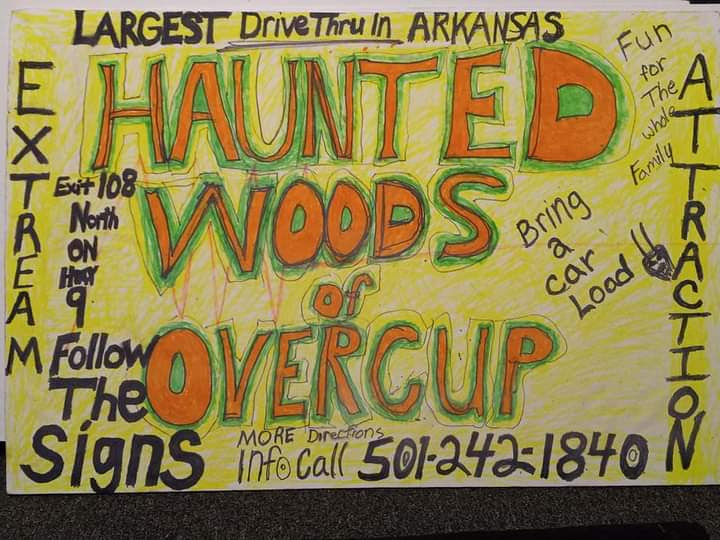 LARGEST DriveThru In ARKANSAS
EXTREAM
HAUNTED
WOODS
of
OVERCUP
Exit 108
North
ON
HWY
9
Follow
The
Signs
Fun
for
The
whole
Family
ATTRACTION
Bring
a
car
Load !!
MORE Directions
Info Call 501-242-1840